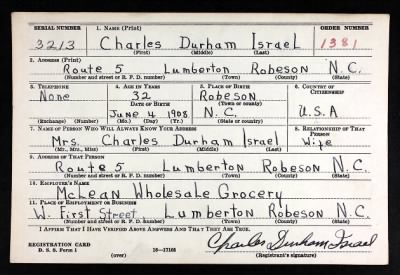 SERIAL NUMBER 1. NAME (Print) ORDER NUMBER
3213 Charles Durham Israel 1381
(First) (Middle) (Last)
2. ADDRESS (Print)
Route 5 Lumberton Robeson N.C.
(Number and street or R. F. D. number) (Town) (County) (State)
3. TELEPHONE 4. AGE IN YEARS 5. PLACE OF BIRTH 6. COUNTRY OF CITIZENSHIP
None 32 Robeson
DATE OF BIRTH (Town or county)
June 4 1908 N.C. U.S.A
(Exchange) (No.) (Mo.) (Day) (Yr.) (State or country)
7. NAME OF PERSON WHO WILL ALWAYS KNOW YOUR ADDRESS 8. RELATIONSHIP OF THAT PERSON
Mrs. Charles Durham Israel Wife
(Mr., Mrs., Miss) (First) (Middle) (Last)
9. ADDRESS OF THAT PERSON
Route 5 Lumberton Robeson N.C.
(Number and street or R. F. D. number) (Town) (County) (State)
10. EMPLOYER'S NAME
McLean Wholesale Grocery
11. PLACE OF EMPLOYMENT OR BUSINESS
W. First Street Lumberton Robeson N.C.
(Number and street or R. F. D. number) (Town) (County) (State)
I AFFIRM THAT I HAVE VERIFIED ABOVE ANSWERS AND THAT THEY ARE TRUE.
REGISTRATION CARD
D. S. S. Form 1 16—17105 Charles Durham Israel
(over) (Registrant's signature)